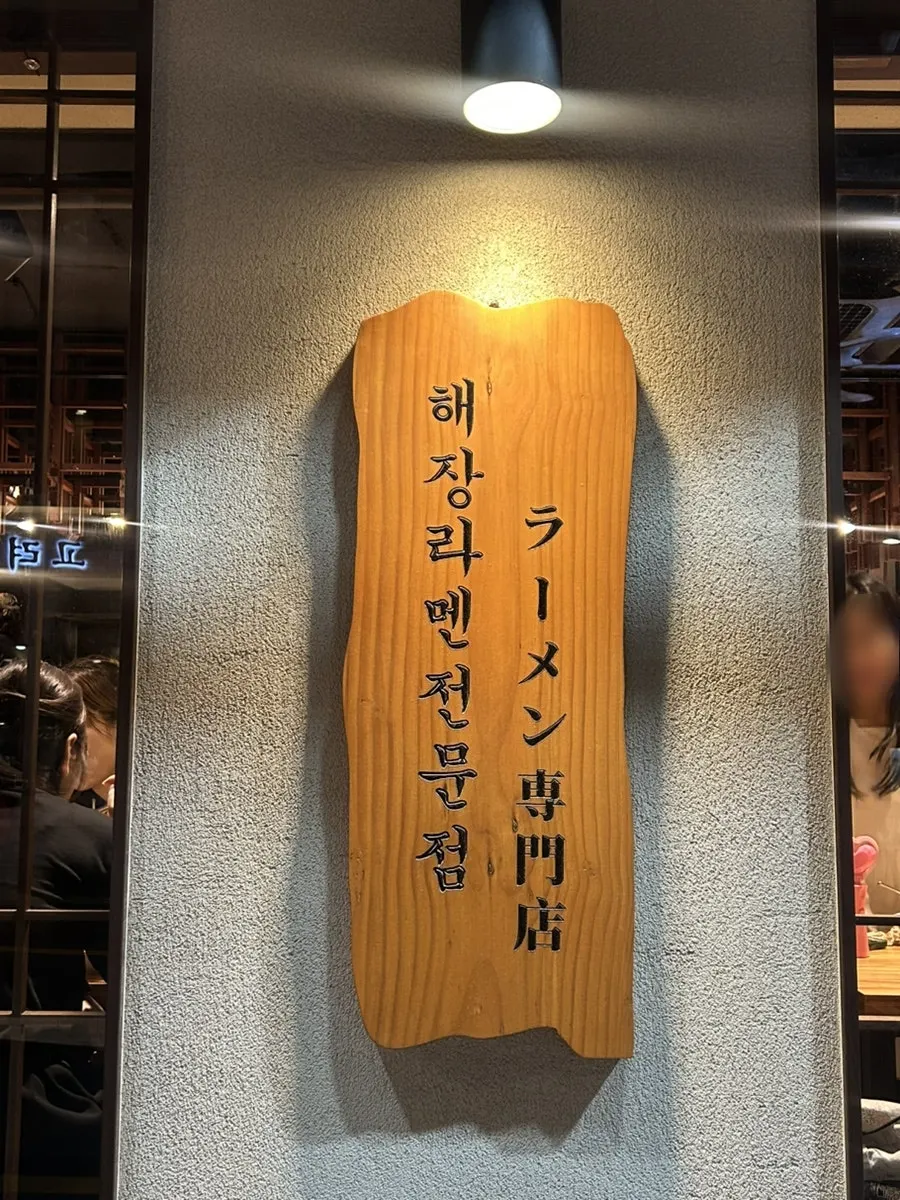 해장라멘전문점
ラーメン専門店
고려